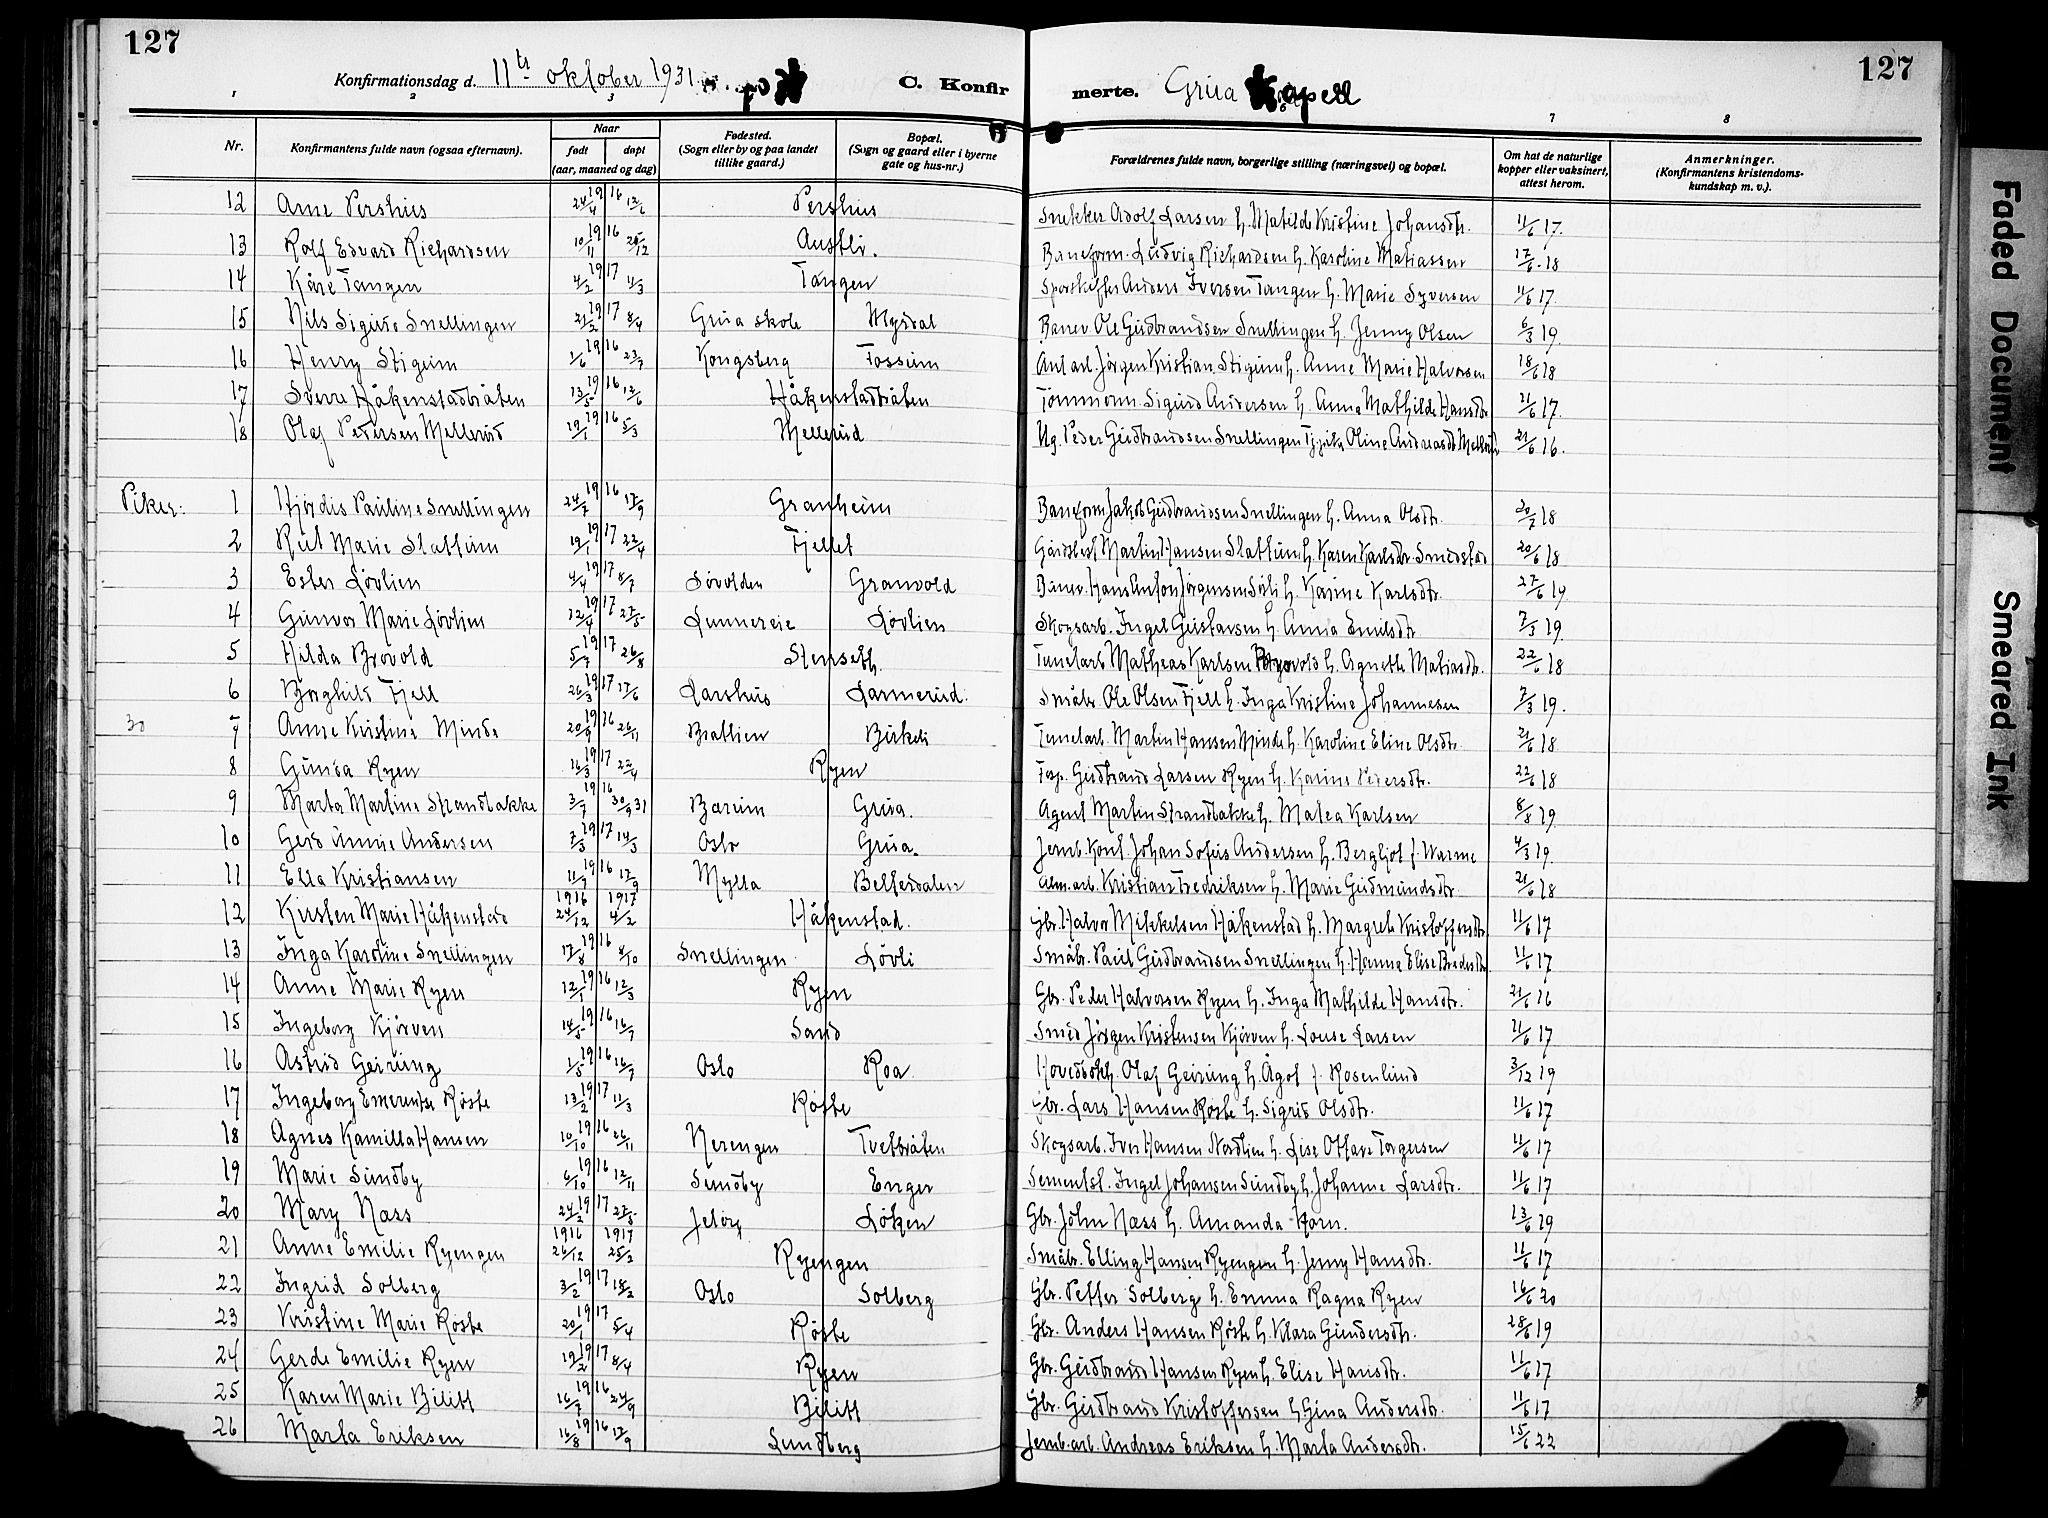 127
127
Konfirmationsdag d. 11te oktober 1931.
C. Konfirmerte. Grua Kapell
1 2 3 7 8
Nr. Konfirmantens fulde navn (ogsaa efternavn). Naar født døpt (aar, maaned og dag) Fødested. (Sogn eller by og paa landet tillike gaard.) Bopæl. (Sogn og gaard eller i byerne gate og hus-nr.) Forældrenes fulde navn, borgerlige stilling (næringsvei) og bopæl. Om hat de naturlige kopper eller vaksinert, attest herom. Anmerkninger. (Konfirmantens kristendomskundskap m. v.).
12 Arne Pershus 24/4 1916 12/6 Pershus Snekker Adolf Larsen h. Matilde Kristine Johansdtr. 11/6 17.
13 Rolf Edvard Richardsen 10/11 1916 25/12 Austli. Baneform. Ludvig Richardsen h. Karoline Matiassen 17/6 18
14 Kåre Tangen 4/2 1917 4/3 Tangen Sporskifter Anders Iversen Tangen h. Marie Syversen 11/6 17.
15 Nils Sigurd Snellingen 21/2 1917 8/4 Grua skole Myrdal Banev. Ole Gudbrandsen Snellingen h. Jenny Olsen 6/3 19.
16 Henry Stigum 1/6 1916 23/7 Kongsberg Fossum Anl.arb. Jörgen Kristian Stigum h. Anne Marie Halvorsen 18/6 18
17 Sverre Håkenstadbråten 13/5 1916 12/6 Håkenstadbråten Tömmerm. Sigurd Andersen h. Anna Mathilde Hansdtr. 21/6 17.
18 Olaf Pedersen Mellerud 19/1 1916 5/3 Mellerud Ug. Peder Gudbrandsen Snellingen Tj.pike Oline Andreasdtr Mellerud 21/6 16.
Piker:
1 Hjördis Pauline Snellingen 24/7 1916 17/9 Granheim Baneform. Jakob Gudbrandsen Snellingen h. Anna Olsdtr. 20/7 18
2 Rut Marie Slattum 19/1 1917 22/4 Fjellet Gårdsbest. Martin Hansen Slattum h. Karen Karlsdtr Smedstad 20/6 18
3 Ester Lövlien 4/4 1917 8/7 Sørvolden Granvold Banev. Hans Anton Jörgensen Sörli h. Karine Karlsdtr. 27/6 19
4 Gunvor Marie Lövlien 12/4 1917 27/5 Lunnereie Lövlien Skogsarb. Ingel Gustavsen h. Anna Emilsdtr 7/3 19.
5 Hilda Brovold 5/7 1917 26/8 Stenseth. Tunelarb Matheas Karlsen Brovold h. Agnethe Matiasdtr. 22/6 18
6 Borghild Fjell 26/3 1917 17/6 Larshus Larmerud. Småbr. Ole Olsen Fjell h. Inga Kristine Johannesen 7/3 19.
30
7 Anne Kristine Minde 20/9 1916 26/11 Bratlien Birkeli Tunelarb. Martin Hansen Minde h. Karoline Eline Olsdtr. 21/6 18
8 Gunda Ryen 16/3 1917 22/4 Ryen Fosp. Gudbrand Larsen Ryen h. Karine Pedersdtr. 22/6 18
9 Marta Martine Strandbakke 3/7 1916 30/9 31 Bærum Grua. Agent Martin Strandbakke h. Matea Karlsen 8/8 19.
10 Gerd Annie Andersen 7/3 1917 14/3 Oslo Grua. Jernb. Kont. Johan Sofus Andersen h. Bergljot f. Warme 4/3 19.
11 Ella Kristiansen 11/7 1916 17/9 Mylla Beltesdalen Alm.arb. Kristian Fredriksen h. Marie Gudmundsdtr. 21/6 18
12 Kirsten Marie Håkenstad 24/12 1916 4/2 1917 Håkenstad. Gbr. Halvor Mikkelsen Håkenstad h. Margrete Kristoffersdtr. 11/6 17
13 Inga Karoline Snellingen 17/8 1916 8/10 Snellingen Lövli Småbr. Paul Gudbrandsen Snellingen h. Hanna Elise Bredesdtr. 11/6 17
14 Anne Marie Ryen 12/1 1916 12/3 Ryen Gbr. Peder Halvorsen Ryen h. Inga Mathilde Hansdtr. 21/6 16
15 Ingeborg Kjörven 14/5 1916 16/7 Sand Smed Jörgen Kristensen Kjörven h. Louse Larsen 21/6 17
16 Astrid Geirung 1/5 1916 16/7 Oslo Roa. Hovedbokh. Olaf Geirung h. Ågot f. Rosenlund 3/12 19
17 Ingeborg Emerentse Röste 13/2 1917 11/3 Röste Gbr. Lars Hansen Röste h. Sigrid Olsdtr. 11/6 17
18 Agnes Kamilla Hansen 10/10 1916 26/11 Nerengen Tvetbråten Skogsarb. Iver Hansen Nordlien h. Lise Ottave Torgersen 11/6 17
19 Marie Sundby 6/10 1916 12/11 Sundby Enger Sementst. Ingel Johansen Sundby h. Johanne Larsdtr. 11/6 17
20 Mary Næss 24/2 1917 27/5 Jelöy Löken Gbr. John Næss h. Amanda Horn. 13/6 19
21 Anne Emilie Ryengen 26/12 1916 25/2 1917 Ryengen Småbr. Elling Hansen Ryengen h. Jenny Hansdtr. 11/6 17
22 Ingrid Solberg 3/2 1917 18/2 Oslo Solberg Gbr. Petter Solberg h. Emma Ragna Ryen 16/6 20
23 Kristine Marie Röste 20/1 1917 5/4 Röste Gbr. Anders Hansen Röste h. Klara Gundersdtr. 28/6 19
24 Gerda Emilie Ryen 19/2 1917 8/4 Ryen Gbr. Gudbrand Hansen Ryen h. Elise Hansdtr. 11/6 17
25 Karen Marie Bilitt 16/7 1916 24/9 Bilitt Gbr. Gudbrand Kristoffersen h. Gina Andersdtr. 11/6 17
26 Marta Eriksen 16/8 1916 17/9 Lundberg Jernb.arb. Andreas Eriksen h. Marta Andersdtr. 15/6 22
Faded Document
Smeared Ink